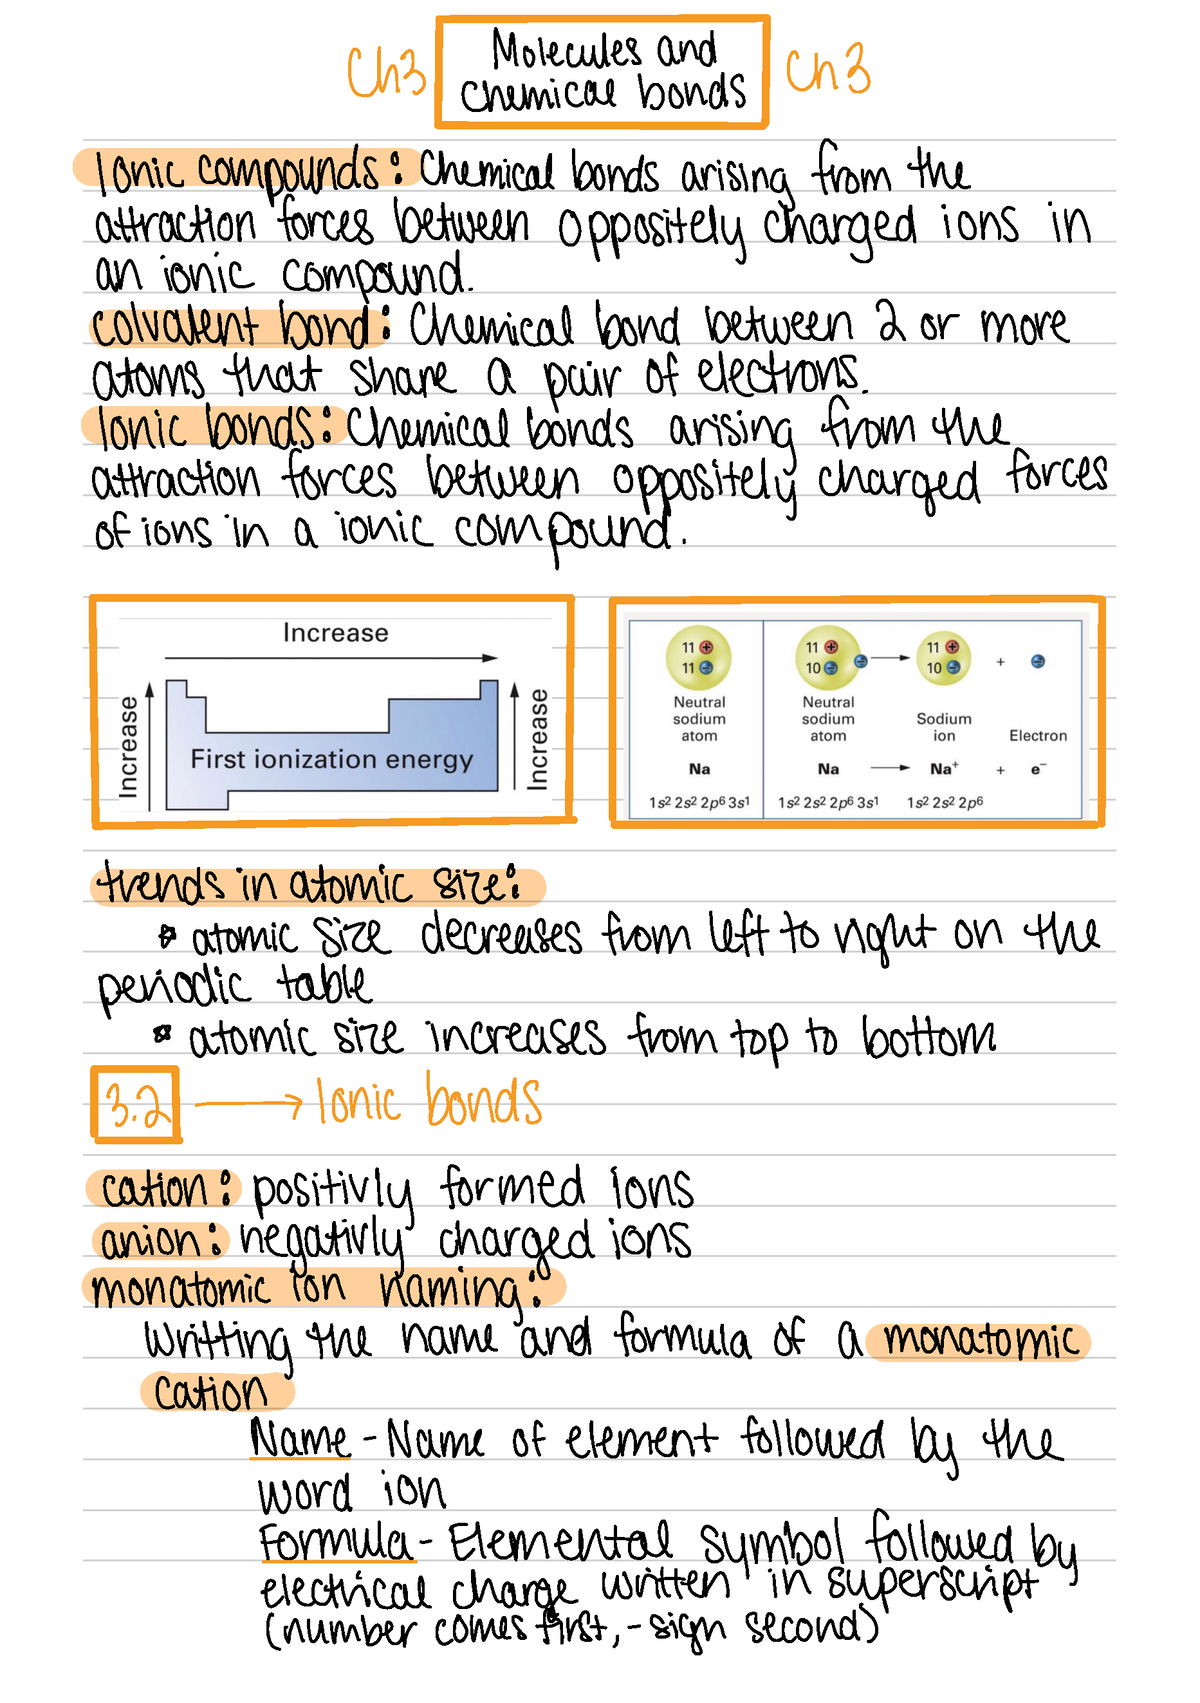 Ch3 Molecules and Ch3
chemical bonds
Ionic compounds: Chemical bonds arising from the
attraction forces between oppositely charged ions in
an ionic compound.
colvalent bond: Chemical bond between 2 or more
atoms that share a pair of electrons.
Ionic bonds: Chemical bonds arising from the
attraction forces between oppositely charged forces
of ions in a ionic compound.
Increase
Increase
First ionization energy
Increase
11 +
11 -
Neutral
sodium
atom
Na
1s² 2s² 2p⁶ 3s¹
11 +
10 - -
Neutral
sodium
atom
Na
1s² 2s² 2p⁶ 3s¹
→
11 +
10 -
Sodium
ion
→ Na⁺
1s² 2s² 2p⁶
+ -
Electron
+ e⁻
trends in atomic size:
atomic size decreases from left to right on the
periodic table
atomic size increases from top to bottom
3.2 → Ionic bonds
cation: positivly formed ions
anion: negativly charged ions
monatomic ion naming:
Writting the name and formula of a monatomic
cation
Name - Name of element followed by the
word ion
Formula - Elemental symbol followed by
electrical charge written in superscript
(number comes first, - sign second)